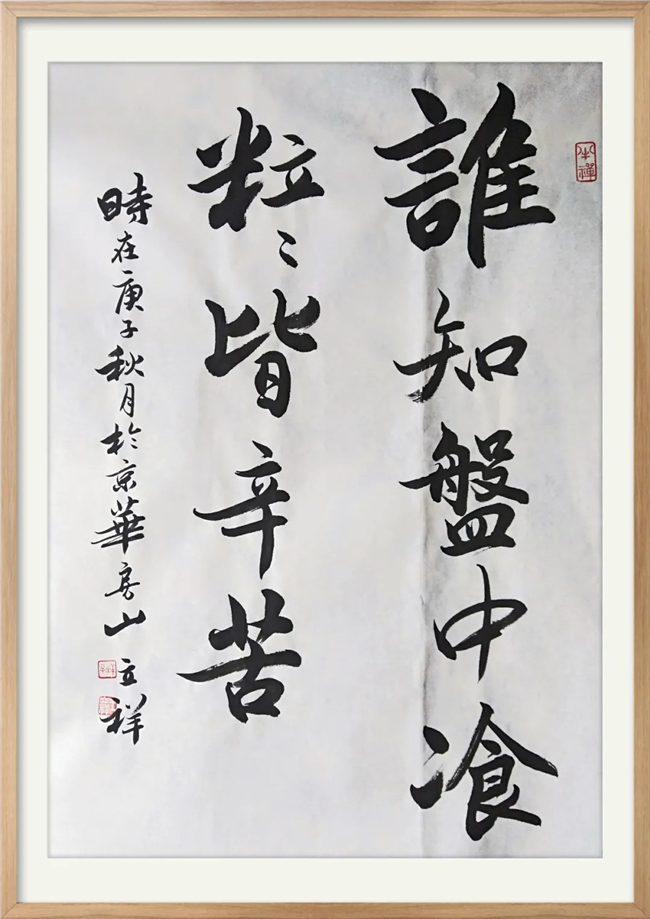 誰知盤中飡
粒〻皆辛苦
時在庚子秋月於京華房山立祥